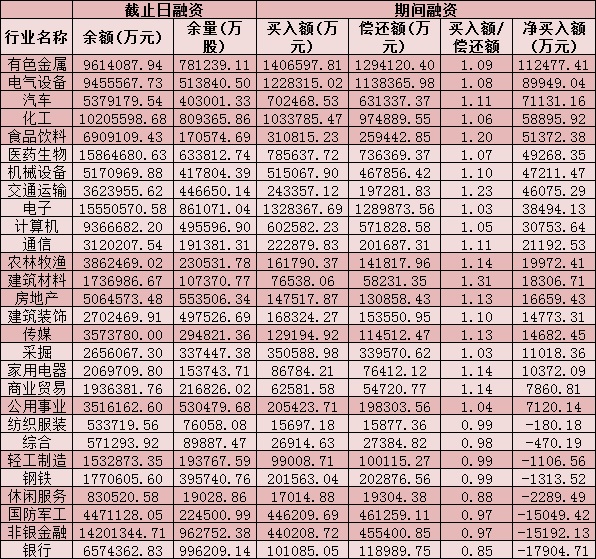 截止日融资 期间融资
行业名称 余额(万元) 余量(万股) 买入额(万元) 偿还额(万元) 买入额/偿还额 净买入额(万元)
有色金属 9614087.94 781239.11 1406597.81 1294120.40 1.09 112477.41
电气设备 9455567.73 513840.50 1228315.02 1138365.98 1.08 89949.04
汽车 5379179.54 403001.33 702468.53 631337.37 1.11 71131.16
化工 10205598.68 809365.86 1033785.47 974889.55 1.06 58895.92
食品饮料 6909109.43 170574.69 310815.23 259442.85 1.20 51372.38
医药生物 15864680.63 633812.74 785637.72 736369.37 1.07 49268.35
机械设备 5170969.88 417804.39 515067.90 467856.42 1.10 47211.47
交通运输 3623955.62 446650.14 243357.12 197281.83 1.23 46075.29
电子 15550570.58 861071.04 1328367.69 1289873.56 1.03 38494.13
计算机 9366682.20 495596.90 602582.23 571828.58 1.05 30753.64
通信 3120207.54 191381.31 222879.83 201687.31 1.11 21192.53
农林牧渔 3862469.02 230531.78 161790.37 141817.96 1.14 19972.41
建筑材料 1736986.67 107370.77 76538.06 58231.35 1.31 18306.71
房地产 5064573.48 553506.34 147517.87 130858.43 1.13 16659.43
建筑装饰 2702469.91 497526.69 168324.27 153550.95 1.10 14773.31
传媒 3573780.00 294821.36 129194.92 114512.47 1.13 14682.45
采掘 2656067.30 337447.38 350588.98 339570.62 1.03 11018.36
家用电器 2069709.80 153743.71 86784.21 76412.12 1.14 10372.09
商业贸易 1936381.76 216826.02 62581.58 54720.77 1.14 7860.81
公用事业 3516162.60 530479.68 205423.71 198303.56 1.04 7120.14
纺织服装 533719.56 76058.08 15697.18 15877.36 0.99 -180.18
综合 571293.92 89887.47 26914.63 27384.82 0.98 -470.19
轻工制造 1532873.35 193767.59 99008.71 100115.27 0.99 -1106.56
钢铁 1770605.60 395740.76 201563.04 202876.56 0.99 -1313.52
休闲服务 830520.58 19028.86 17014.88 19304.38 0.88 -2289.49
国防军工 4471128.05 224500.99 446209.69 461259.11 0.97 -15049.42
非银金融 14201344.71 962752.38 440208.72 455400.85 0.97 -15192.13
银行 6574362.83 996209.14 101085.05 118989.75 0.85 -17904.71